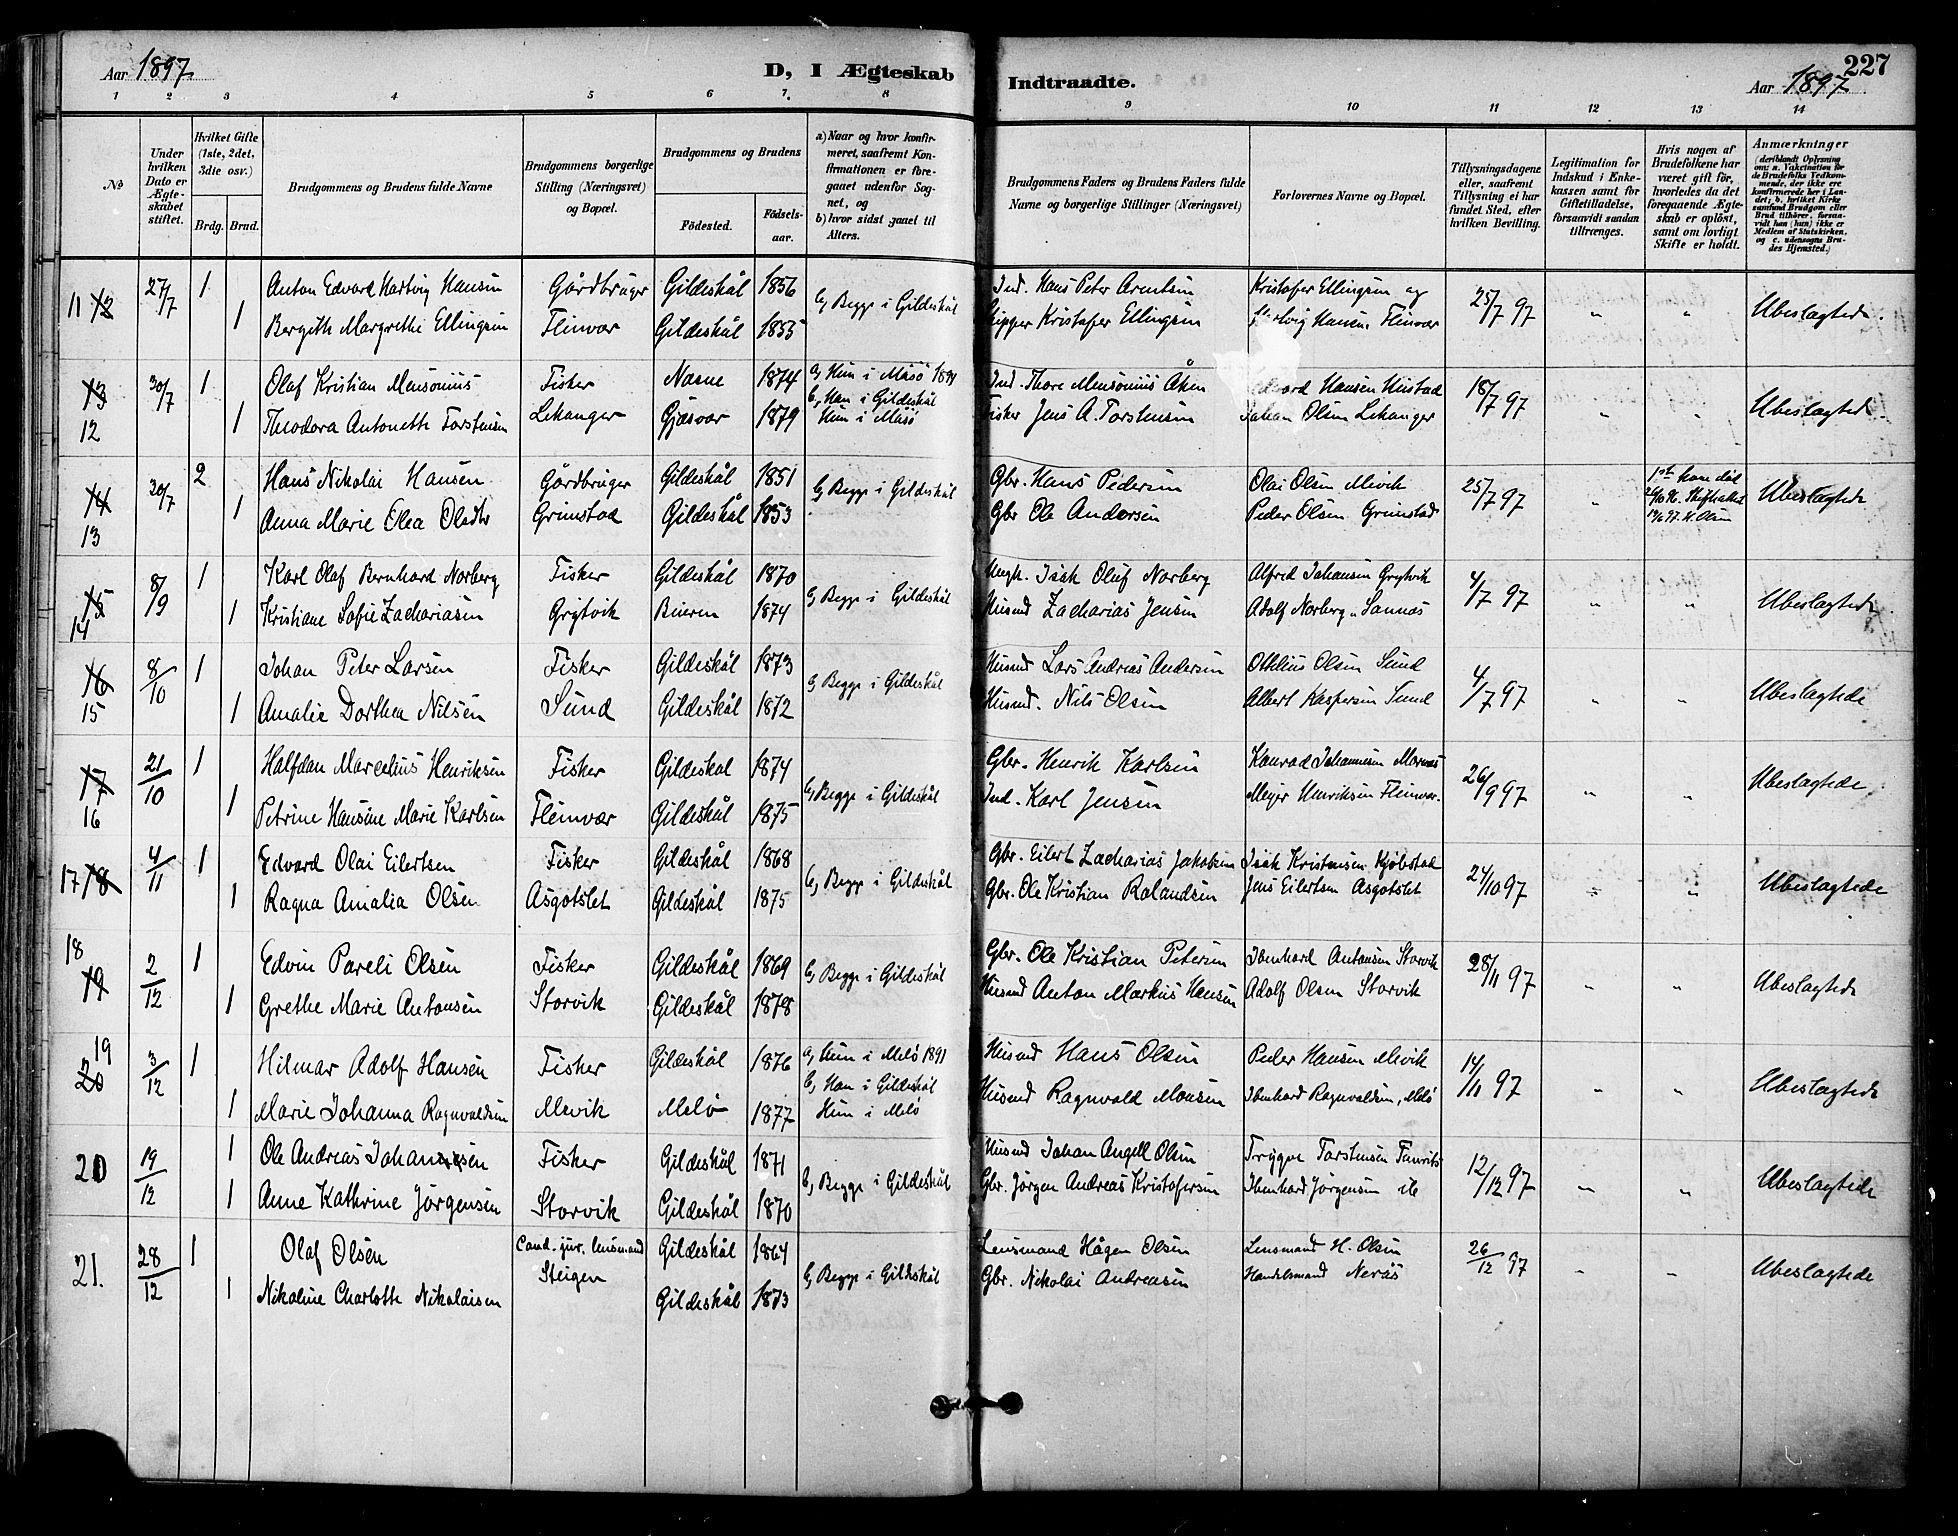 227
Aar 1897
D, I Ægteskab Indtraadte.
Aar 1897
1 2 3 4 5 6 7. 8 9 10 11 12 13 14
№
Under hvilken Dato er Ægteskabet stiftet.
Hvilket Gifte (1ste, 2det, 3die osv.)
Brdg. Brud.
Brudgommens og Brudens fulde Navne
Brudgommens borgerlige Stilling (Næringsvei) og Bopæl.
Brudgommens og Brudens
Fødested. Fødselsaar.
a) Naar og hvor konfirmeret, saafremt Konfirmationen er foregaaet udenfor Sognet, og
b) hvor sidst gaaet til Alters.
Brudgommens Faders og Brudens Faders fulde Navne og borgerlige Stillinger (Næringsvei)
Forlovernes Navne og Bopæl.
Tillysningsdagene eller, saafremt Tillysning ei har fundet Sted, efter hvilken Bevilling.
Legitimation for Indskud i Enkekassen samt for Giftetilladelse, forsaavidt saadan tiltrænges.
Hvis nogen af Brudefolkene har været gift før, hvorledes da det foregaaende Ægteskab er opløst, samt om lovligt Skifte er holdt.
Anmærkninger
(deriblandt Oplysning om: a. Vakcination for de Brudefolks Vedkommende, der ikke ere konfirmerede her i Landet; b. hvilket Kirkesamfund Brudgom eller Brud tilhører, forsaavidt han (hun) ikke er Medlem af Statskirken, og c. udensogns Brudes Hjemsted.)
11 12 27/7 1 Anton Edvard Hartvig Hansen Gårdbruger Gildeskål 1856 b, Begge i Gildeskål Ind. Hans Peter Arntsen Kristofer Ellingsen og 25/7 97 " " Ubeslægtede.
1 Bergith Margrethe Ellingsen Fleinvær Gildeskål 1855 Skipper Kristofer Ellingsen Hartvig Hansen Fleinvær
13 30/7 1 Olaf Kristian Mensonius Fisker Næsne 1874 a, Hun i Måsö 1894 Ind. Thore Mensonius Åker Edvard Hansen Hustad 18/7 97 " " Ubeslægtede.
b, Han i Gildeskål
12 1 Theodora Antonette Torstensen Lekanger Gjæsvær 1879 Hun i Måsö Fisker Jens A. Torstensen Johan Olsen Lekanger
14 30/7 2 Hans Nikolai Hansen Gårdbruger Gildeskål 1851 b, Begge i Gildeskål Gbr. Hans Pedersen Olai Olsen Mevik 25/7 97 " 1ste kone død Ubeslægtede
13 1 Anna Marie Elea Olsdtr Grimstad Gildeskål 1853 Gbr Ole Andersen Peder Olsen Grimstad
15 8/9 1 Karl Olaf Bernhard Norberg Fisker Gildeskål 1870 b, Begge i Gildeskål Ungk. Isak Oluf Norberg Alfred Johansen Grytvik 4/7 97 " " Ubeslægtede
14 1 Kristiane Sofie Zachariasen Grytvik Bieren 1874 Husmd Zacharias Jensen Adolf Norberg " Sannæs
16 8/10 1 Johan Peter Larsen Fisker Gildeskål 1873 b, Begge i Gildeskål Husmd Lars Andreas Andersen Othelius Olsen Sund 4/7 97 " " Ubeslægtede
15 1 Amalie Dorthea Nilsen Sund Gildeskål 1872 Husmd. Nils Olsen Albert Kaspersen Sund
17 21/10 1 Halfdan Marcelius Henriksen Fisker Gildeskål 1874 b, Begge i Gildeskål Gbr. Henrik Karlsen Konrad Johannesen Mårnæs 26/9 97 " " Ubeslægtede
16 1 Petrine Hansine Marie Karlsen Fleinvær Gildeskål 1875 Ind. Karl Jensen Meyer Henriksen Fleinvær.
17 18 4/11 1 Edvard Olai Eilertsen Fisker Gildeskål 1868 b, Begge i Gildeskål Gbr. Eilert Zacharias Jakobsen Isak Kristensen Kjöbstad 24/10 97 " " Ubeslægtede
1 Ragna Amalia Olsen Asgotslet Gildeskål 1875 Gbr. Ole Kristian Rolandsen Jens Eilertsen Asgotslet
18 19 2/12 1 Edvin Pareli Olsen Fisker Gildeskål 1869 b, Begge i Gildeskål Gbr. Ole Kristian Petersen Ibenhard Antonsen Storvik 28/11 97 " " Ubeslægtede
1 Grethe Marie Antonsen Storvik Gildeskål 1878 Husmd Anton Markus Hansen Adolf Olsen Storvik
19 20 3/12 1 Hilmar Adolf Hansen Fisker Gildeskål 1876 a, Hun i Melö 1891 Husmd Hans Olsen Peder Hansen Mevik 14/11 97 " " Ubeslægtede
b, Han i Gildeskål
1 Marie Johanna Ragnvaldsen Mevik Melö 1877 Hun i Melö Husmd Ragnvald Monsen Ibenhard Ragnvaldsen, Melö
20 19/12 1 Ole Andreas Johansen Fisker Gildeskål 1871 b, Begge i Gildeskål Husmd Johan Angell Olsen Trygve Torstensen 12/12 97 " " Ubeslægtede
1 Anne Kathrine Jörgensen Storvik Gildeskål 1870 Gbr. Jörgen Andreas Kristofersen Ibenhard Jörgensen
21. 28/12 1 Olaf Olsen Cand. jur. lensmand Gildeskål 1864 b, Begge i Gildeskål Lensmand Hågen Olsen Lensmand H. Olsen 26/12 97 " " Ubeslægtede
Steigen
1 Nikoline Charlotte Nikolaisen Gildeskål 1873 Gbr. Nikolai Andreasen Handelsmand Nerås